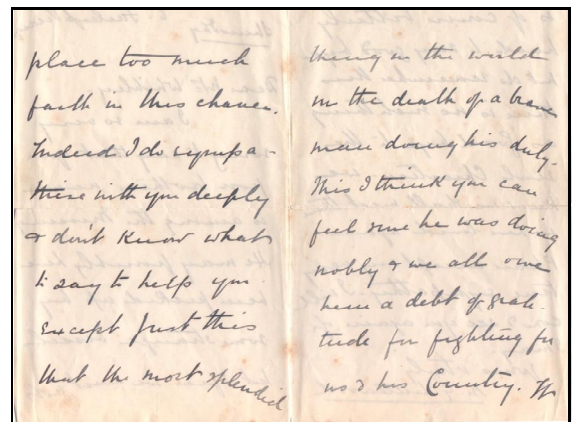 place too much
faith in this chance.
Indeed I do sympa-
thise with you deeply
& don't know what
to say to help you
except just this
that the most splendid
thing in the world
is the death of a brave
man doing his duty.
This I think you can
feel sure he was doing
nobly & we all owe
him a debt of grati-
tude for fighting for
us & his Country.